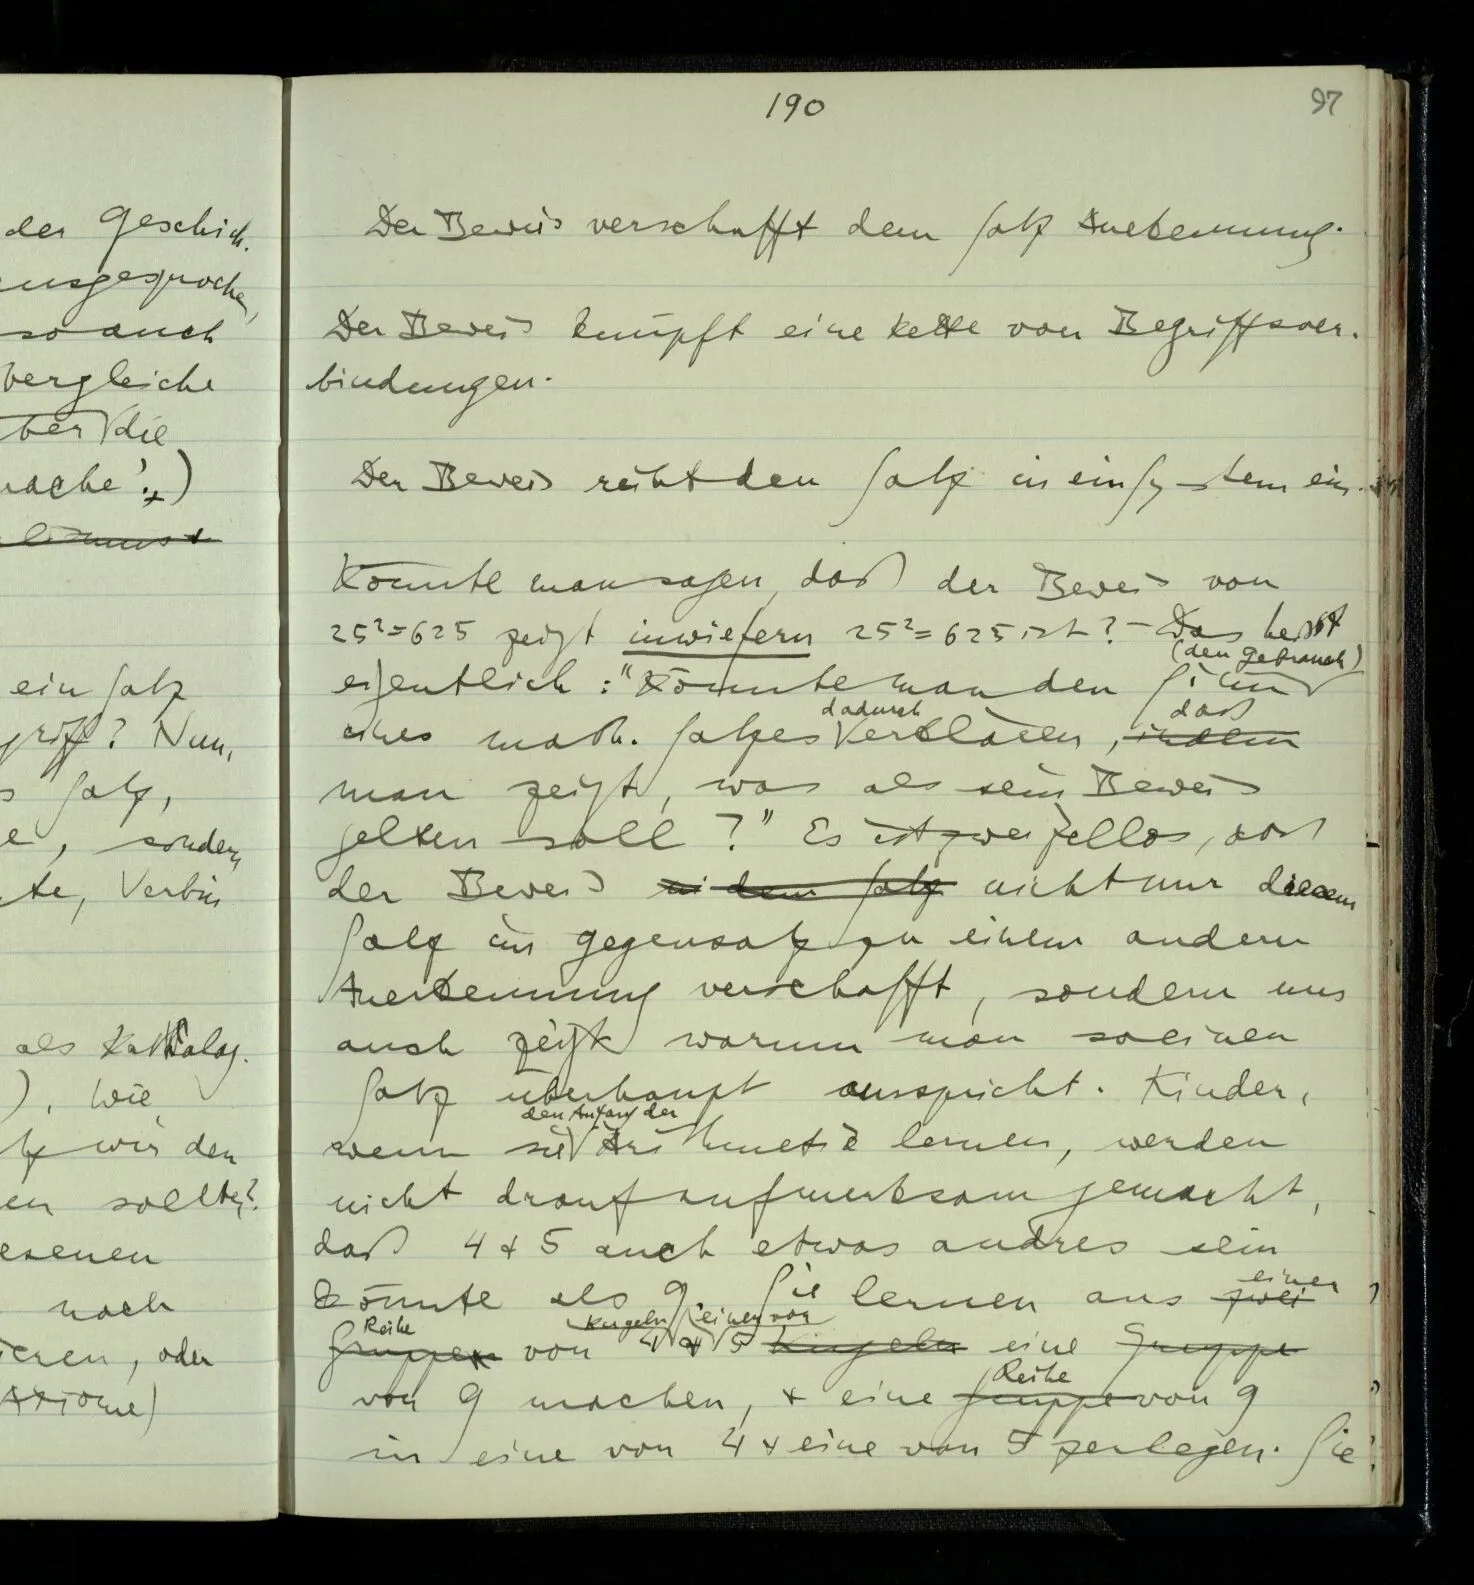 der Geschich-
ausgesprochen,
so auch
vergleiche
über die
)
ein Satz
griff? Nun,
Satz,
, sondern
te, Verbin
als Katalog.
). Wie
wir den
en sollte?
esenen
noch
ieren, oder
Axiome)
190
97
Der Beweis verschafft dem Satz Anerkennung.
Der Beweis knüpft eine Kette von Begriffsver-
bindungen.
Der Beweis reiht den Satz in ein System ein.
Könnte man sagen, daß der Beweis von
25²=625 zeigt inwiefern 25²=625 ist? – Das heißt
(den Gebrauch)
eigentlich: "Könnte man den Sinn
dadurch daß
eines math. Satzes erklären, indem
man zeigt, was als sein Beweis
gelten soll?" Es ist zweifellos, daß
der Beweis dem Satz nicht nur diesem
Satz im Gegensatz zu einem andern
Anerkennung verschafft, sondern uns
auch zeigt warum man so einen
Satz überhaupt ausspricht. Kinder,
den Anfang der
wenn sie Arithmetik lernen, werden
nicht drauf aufmerksam gemacht,
daß 4 + 5 auch etwas andres sein
einer
könnte als 9. Sie lernen aus zwei
Reihe Kugeln einer von
Gruppen von 4 & 5 Kugeln eine Gruppe
Reihe
von 9 machen, & eine Gruppe von 9
in eine von 4 & eine von 5 zerlegen. Sie